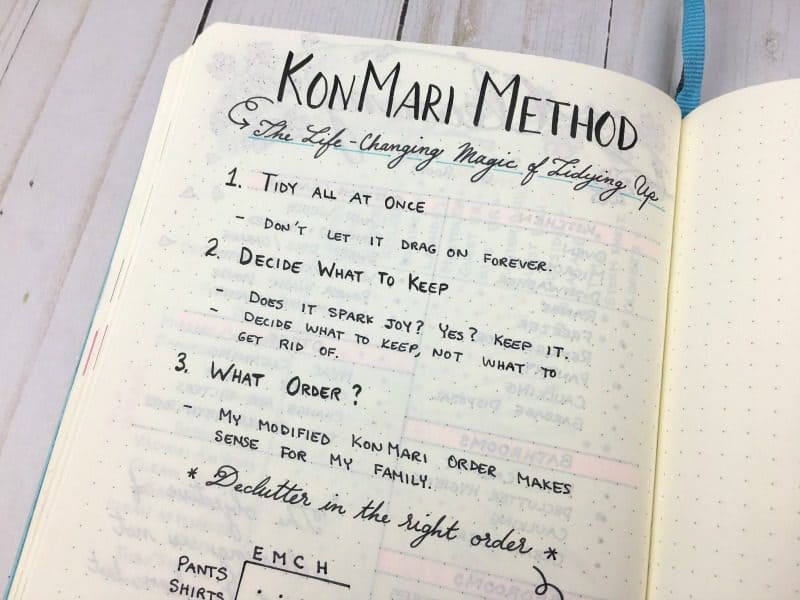 KONMARI METHOD
The Life-Changing Magic of Tidying Up
1. TIDY ALL AT ONCE
- DON'T LET IT DRAG ON FOREVER.
2. DECIDE WHAT TO KEEP
- DOES IT SPARK JOY? YES? KEEP IT.
- DECIDE WHAT TO KEEP, NOT WHAT TO
GET RID OF.
3. WHAT ORDER?
- MY MODIFIED KONMARI ORDER MAKES
SENSE FOR MY FAMILY.
* Declutter in the right order *
E M C H
PANTS
SHIRTS